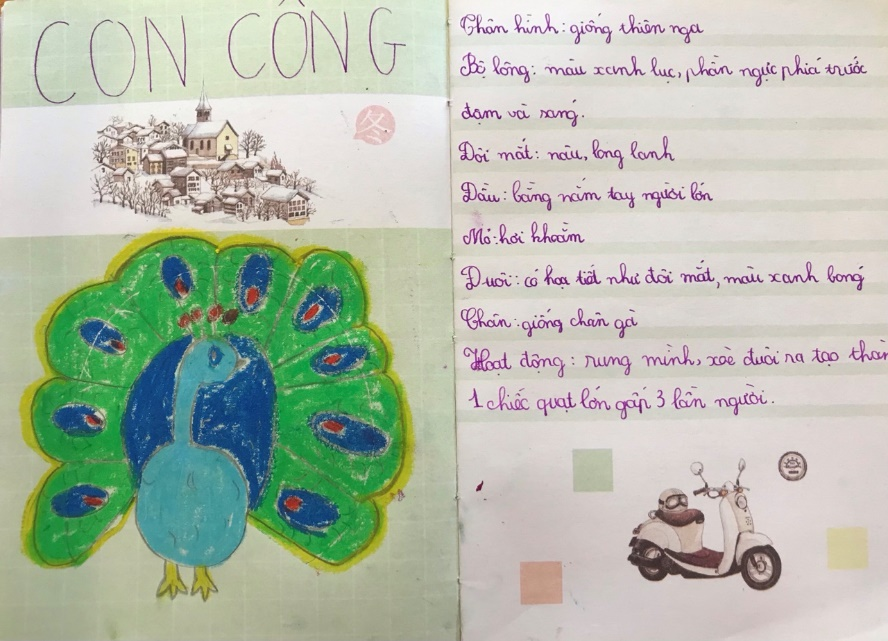 CON CÔNG
冬
Thân hình: giống thiên nga
Bộ lông: màu xanh lục, phần ngực phía trước
đạm và sáng.
Đôi mắt: nâu, long lanh
Đầu: bằng nắm tay người lớn
Mỏ: hơi khoằm
Đuôi: có hoạ tiết như đôi mắt, màu xanh bóng
Chân: giống chân gà
Hoạt động: rung mình, xoè đuôi ra tạo thàn
1 chiếc quạt lớn gấp 3 lần người.